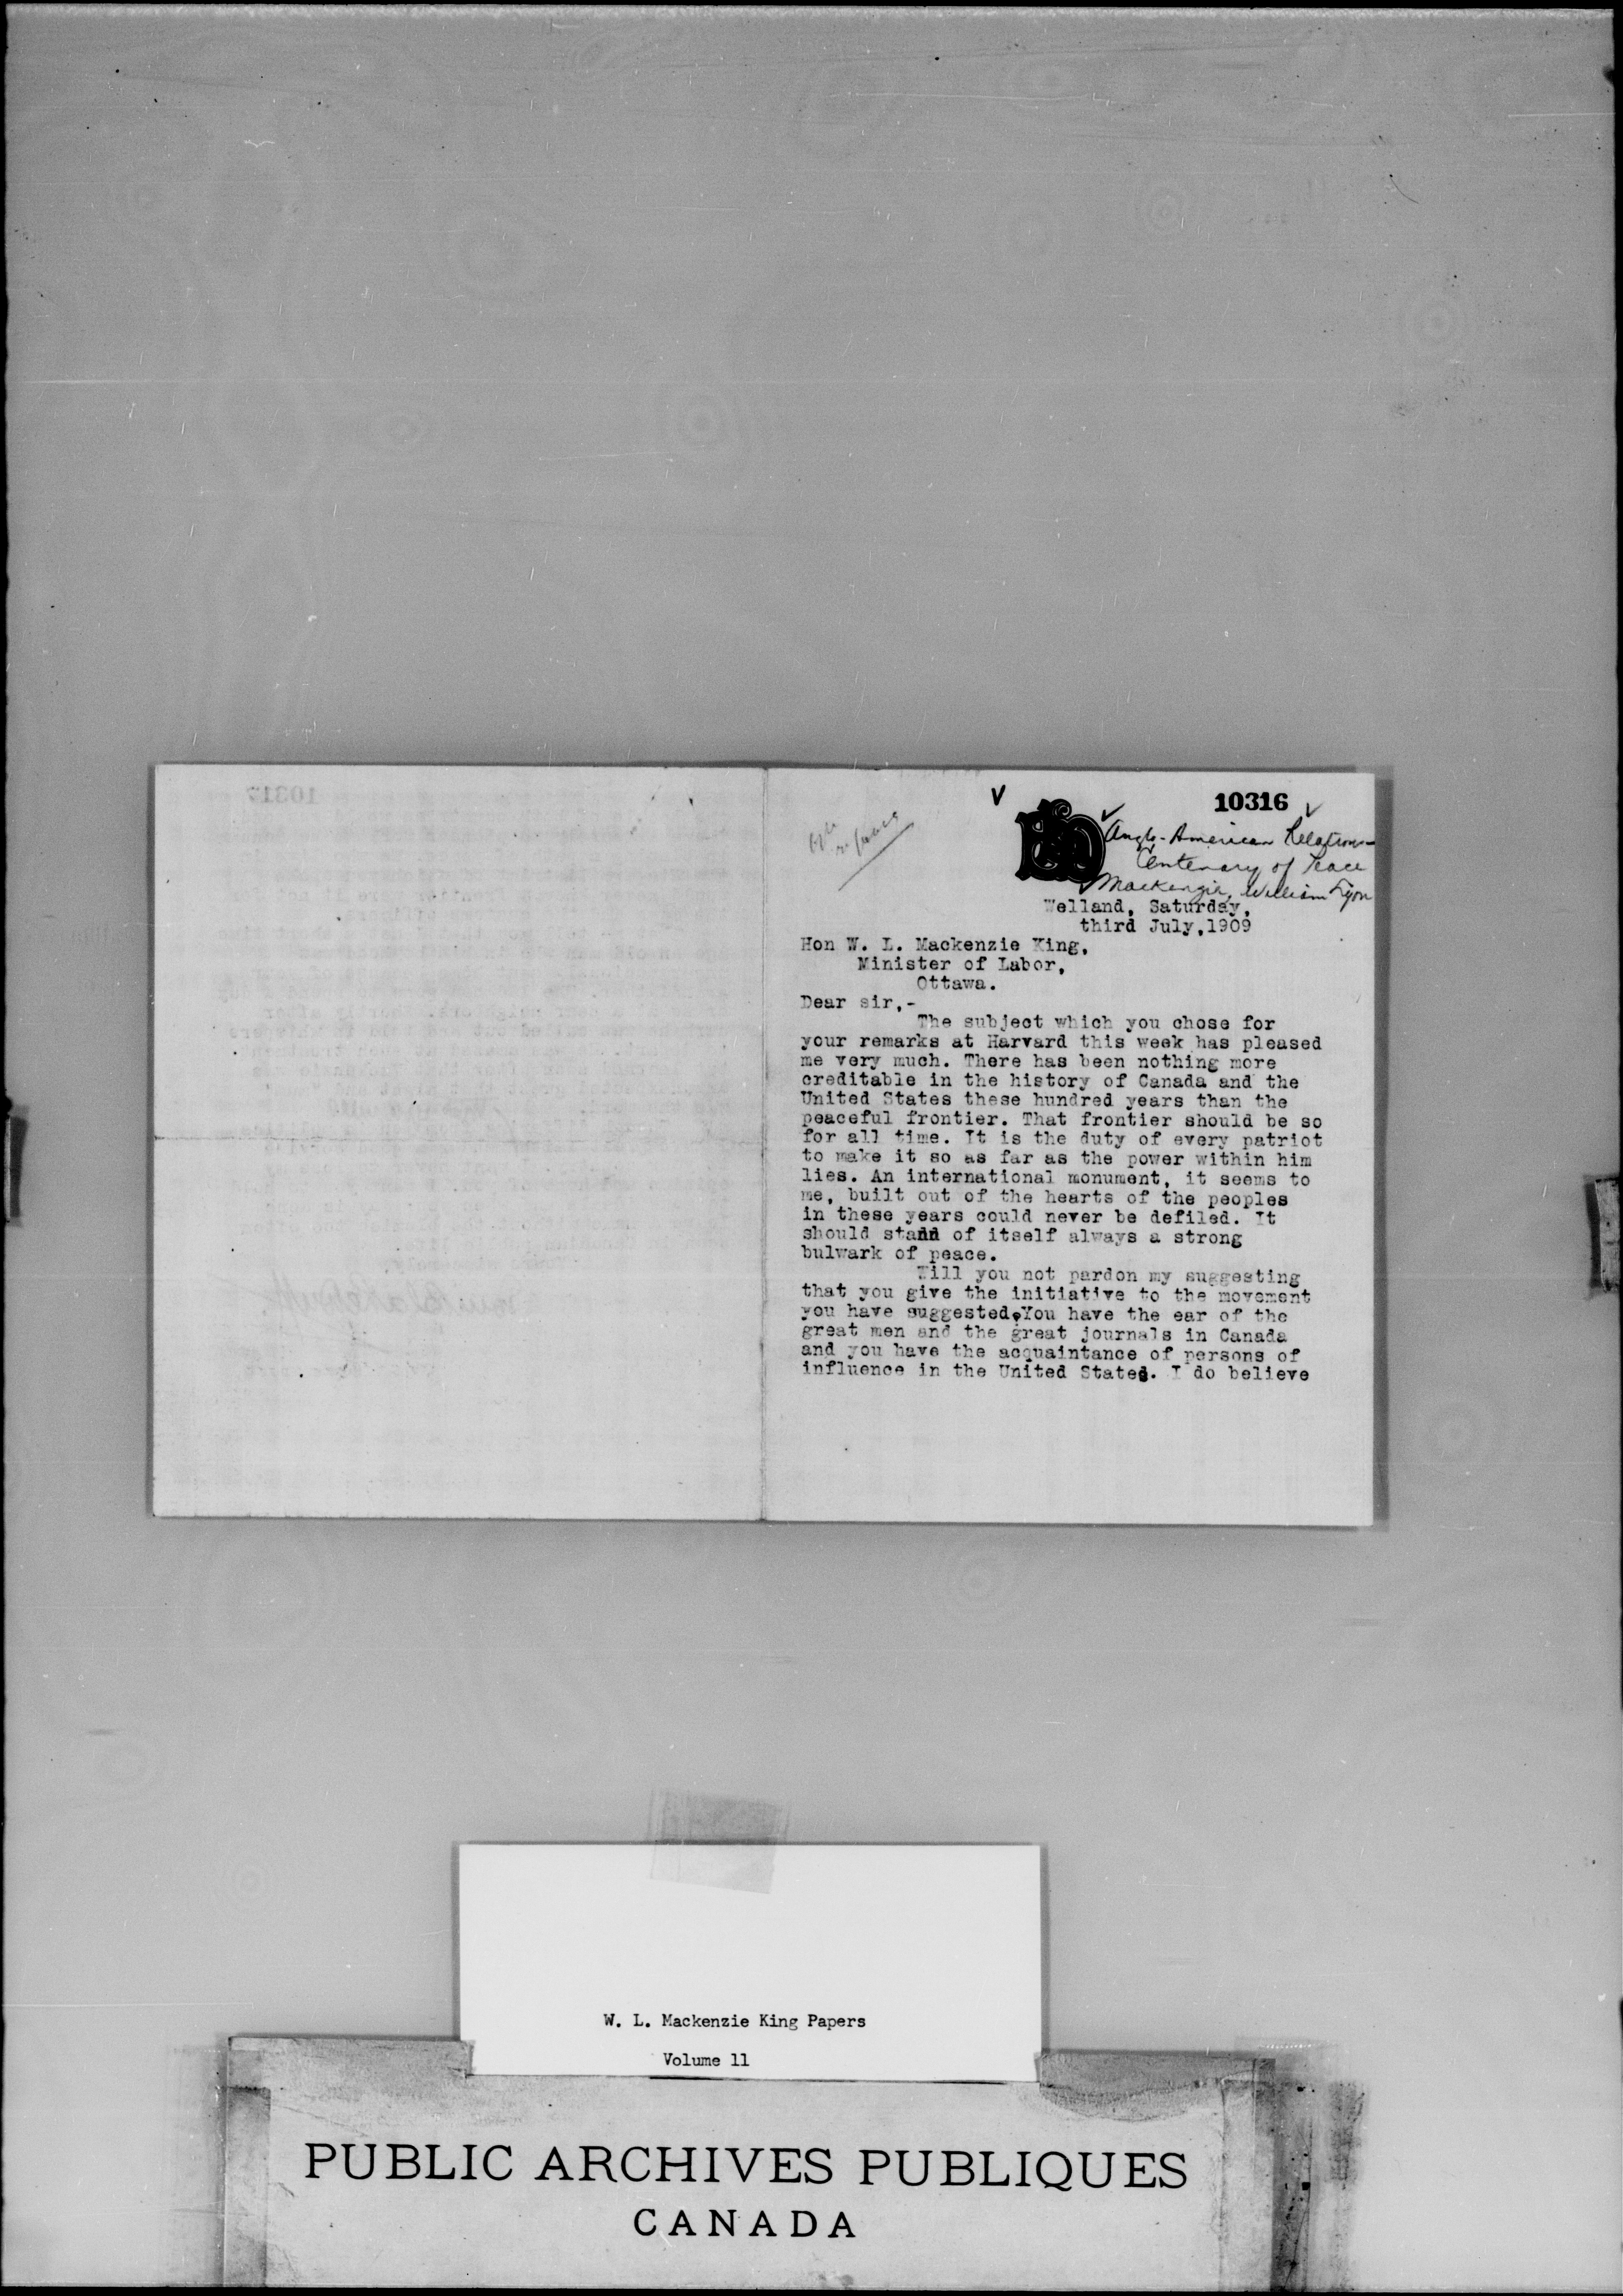 10316
Anglo-American Relations-
Centenary of Peace
Mackenzie, William Lyon
Welland, Saturday,
third July,1909
Hon W. L. Mackenzie King,
Minister of Labor,
Ottawa.
Dear sir,-
The subject which you chose for
your remarks at Harvard this week has pleased
me very much. There has been nothing more
creditable in the history of Canada and the
United States these hundred years than the
peaceful frontier. That frontier should be so
for all time. It is the duty of every patriot
to make it so as far as the power within him
lies. An international monument, it seems to
me, built out of the hearts of the peoples
in these years could never be defiled. It
should stand of itself always a strong
bulwark of peace.
Will you not pardon my suggesting
that you give the initiative to the movement
you have suggested. You have the ear of the
great men and the great journals in Canada
and you have the acquaintance of persons of
influence in the United States. I do believe
W. L. Mackenzie King Papers
Volume 11
PUBLIC ARCHIVES PUBLIQUES
CANADA